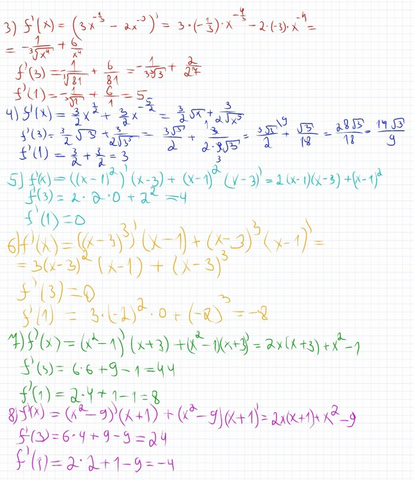 3) f'(x) = (3x^{-1/3} - 2x^{-3})' = 3·(-1/3)·x^{-4/3} - 2·(-3)·x^{-4} =
= -1/∛x⁴ + 6/x⁴
f'(3) = -1/∛81 + 6/81 = -1/3∛3 + 2/27
f'(1) = -1/∛1 + 6/1 = 5
4) f'(x) = 3/2 x^{1/2} + 3/2 x^{-5/2} = 3/2 √x + 3/2√x⁵
f'(3) = 3/2 √3 + 3/2√3⁵ = 3√3/2 + 3/2·9√3 = 3√3/2 + √3/18 = 28√3/18 = 14√3/9
f'(1) = 3/2 + 3/2 = 3
5) f'(x) = ((x-1)²)'(x-3) + (x-1)²(x-3)' = 2(x-1)(x-3) + (x-1)²
f'(3) = 2·2·0 + 2² = 4
f'(1) = 0
6) f'(x) = ((x-3)³)'(x-1) + (x-3)³(x-1)' =
= 3(x-3)²(x-1) + (x-3)³
f'(3) = 0
f'(1) = 3·(-2)²·0 + (-2)³ = -8
7) f'(x) = (x²-1)'(x+3) + (x²-1)(x+3)' = 2x(x+3) + x²-1
f'(3) = 6·6+9-1 = 44
f'(1) = 2·4+1-1 = 8
8) f'(x) = (x²-9)'(x+1) + (x²-9)(x+1)' = 2x(x+1) + x²-9
f'(3) = 6·4+9-9 = 24
f'(1) = 2·2+1-9 = -4